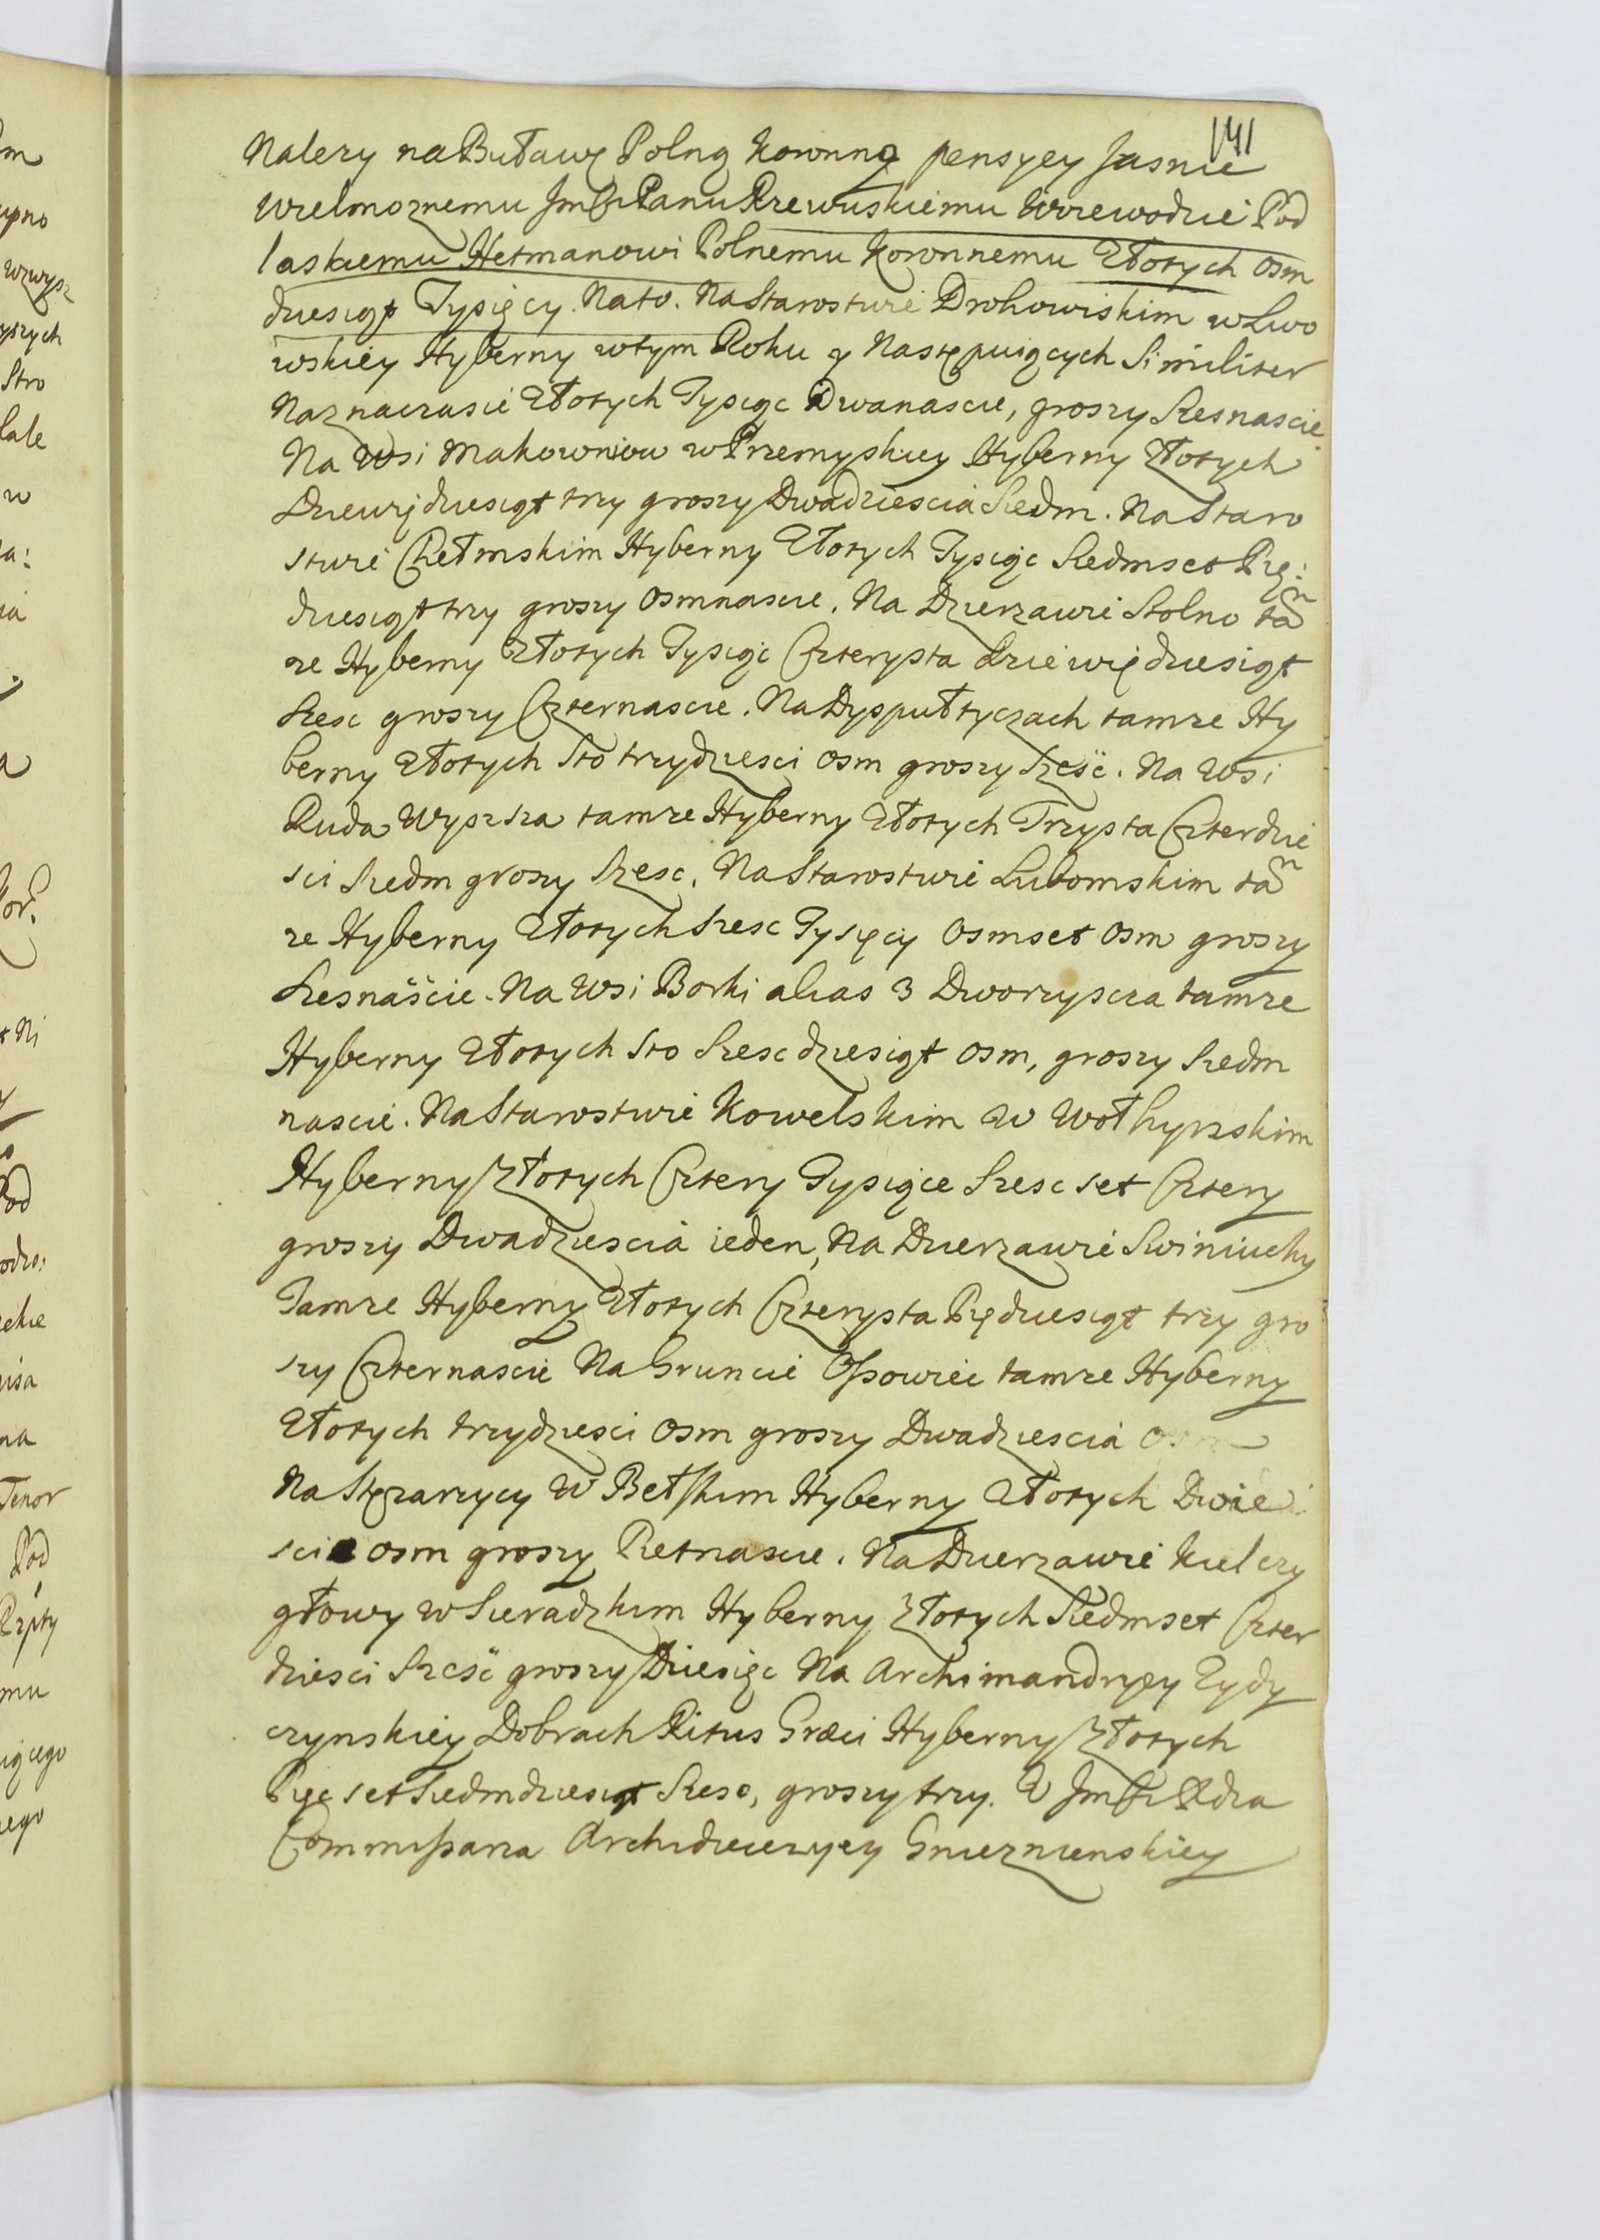 141
Nalezy na Buławę Polną Koronną pensyey Jasnie
Wielmoznemu Jmści Panu Rzewuskiemu Woiewodzie Pod
laskiemu Hetmanowi Polnemu Koronnemu Złotych osm
dziesiąt Tysięcy. Na to. Na Starostwie Drohowiskim w Lwo
wskiey Hyberny w tym Roku y Następuiących Similiter
Naznaczasie Złotych Tysiąc Dwanascie, groszy Szesnascie
Na Wsi Makowniow w Przemyskiey Hyberny Złotych
Dziewiędziesiąt trzy groszy Dwadziescia Siedm. Na Staro
stwie Chełmskim Hyberny Złotych Tysiąc Siedmset Pię:
dziesiąt trzy groszy Osmnascie. Na Dzierzawie Stolno ta͠m
ze Hyberny Złotych Tysiąc Czterysta dziewiędziesiąt
Szesc groszy Czternascie. Na Dysputtyczach tamze Hy
berny Złotych Sto trzydziesci osm groszy Sześć. Na Wsi
Ruda Wyzsza tamze Hyberny Złotych Trzysta Czterdzie
sci Siedm groszy Szesc. Na Starostwie Lubomskim ta͠m
ze Hyberny Złotych Szesc Tysięcy Osmset Osm groszy
Szesnaście. Na Wsi Borki alias 3 Dworzyscza tamze
Hyberny Złotych Sto Szescdziesiąt osm, groszy Siedm
nascie. Na Starostwie Kowelskim w Wołhynskim
Hyberny Złotych Cztery Tysiące Szescset Cztery
groszy Dwadziescia ieden, Na Dzierzawie Swiniuchy
Tamze Hyberny Złotych Czterysta Piędziesiąt trzy gro
szy Czternascie Na Gruncie Ossowiec tamze Hyberny
Złotych trzydziesci Osm groszy Dwadziescia Osm
Na Stęzarzycy w Bełskim Hyberny Złotych Dwie
scie osm groszy Pietnascie. Na Dzierzawie Kielczy
głowy w Sieradzkim Hyberny Złotych Siedmset Czter
dziesci Sześć groszy Dziesięc Na Archimandryey Zydy
czynskiey Dobrach Ritus Græci Hyberny Złotych
Pięcset Siedmdziesiąt Szesc, groszy trzy. W Jmści Xdza
Commissarza Archidiecezyey Gnieznienskiey